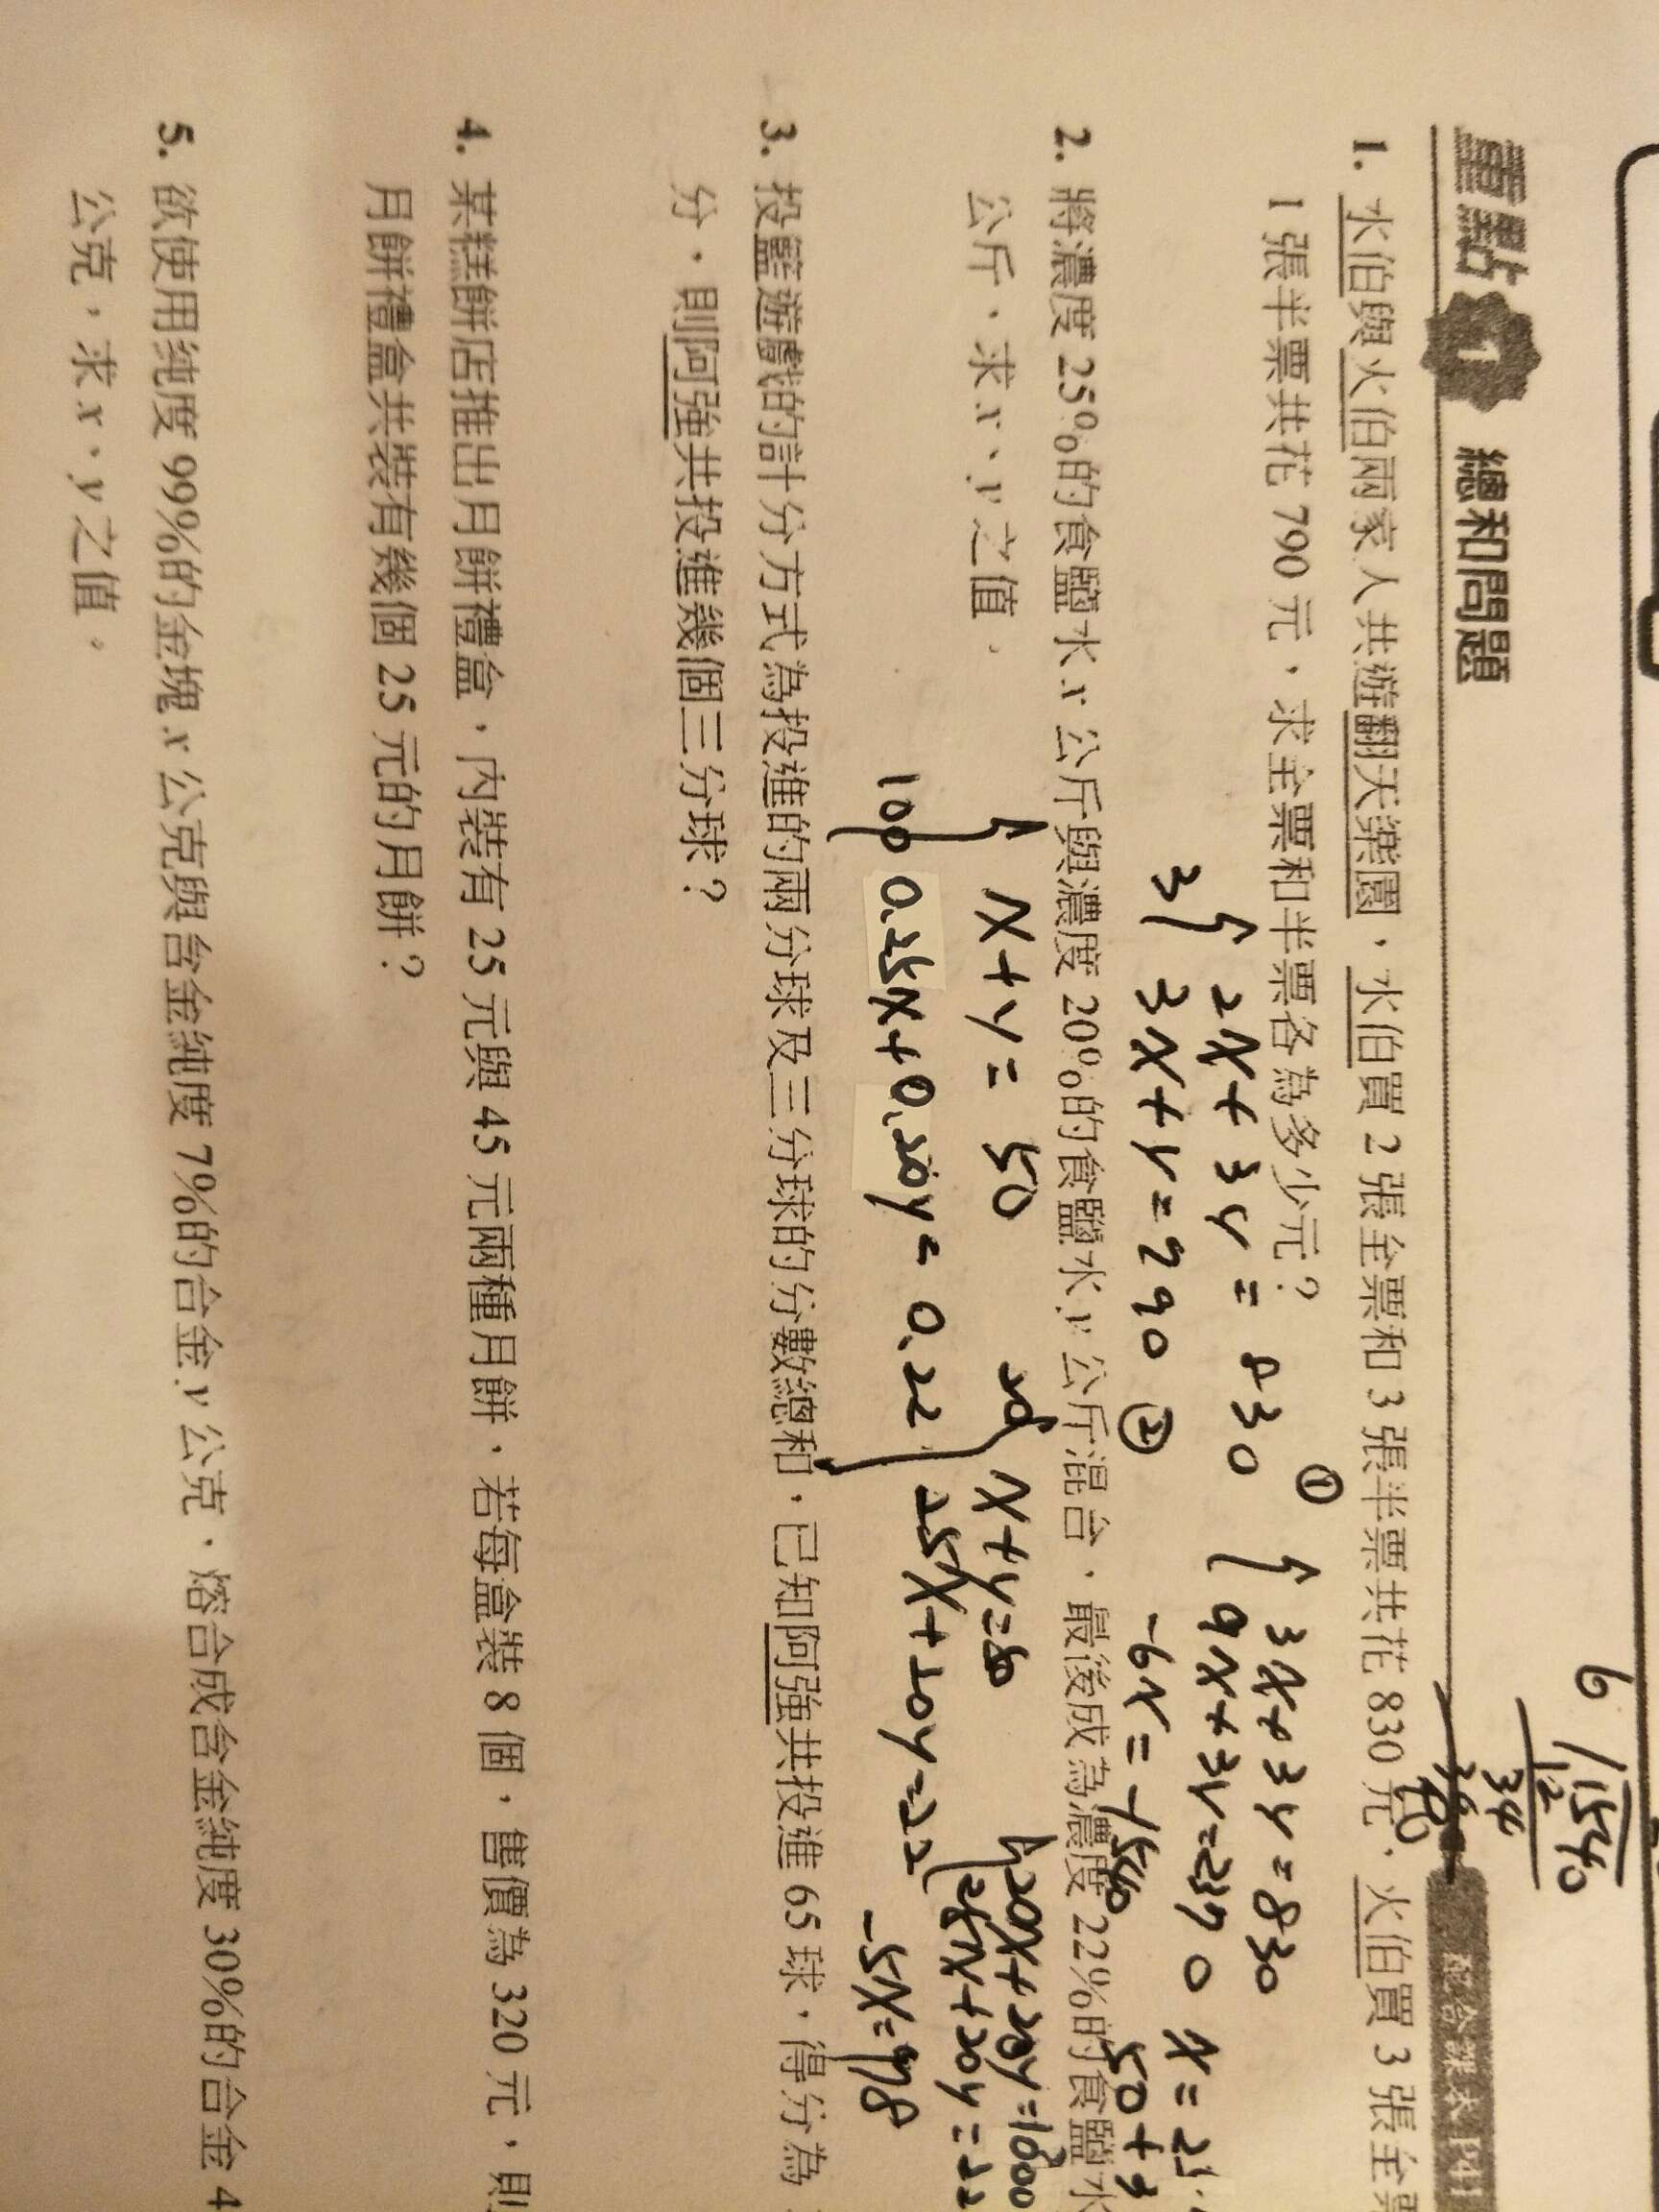 重點 1 總和問題
1. 水伯與火伯兩家人共遊翻天樂園,水伯買 2 張全票和 3 張半票共花 830 元,火伯買 3 張全票
1 張半票共花 790 元,求全票和半票各為多少元?
2x+3y=830 ①
3x+y=790 ②
3x+3y=830
9x+3y=2370
-6x=-1540
6/1540
12
34
2. 將濃度 25%的食鹽水 x 公斤與濃度 20%的食鹽水 y 公斤混合,最後成為濃度 22%的食鹽水
公斤,求 x、y 之值。
x+y=50
100 0.25x+0.20y=0.22
20 x+y=50
25x+20y=22
20x+20y=1000
25x+20y=22
-5x=978
3. 投籃遊戲的計分方式為投進的兩分球及三分球的分數總和,已知阿強共投進 65 球,得分為
分,則阿強共投進幾個三分球?
4. 某糕餅店推出月餅禮盒,內裝有 25 元與 45 元兩種月餅,若每盒裝 8 個,售價為 320 元,則
月餅禮盒共裝有幾個 25 元的月餅?
5. 欲使用純度 99%的金塊 x 公克與含金純度 7%的合金 y 公克,熔合成含金純度 30%的合金 4
公克,求 x、y 之值。